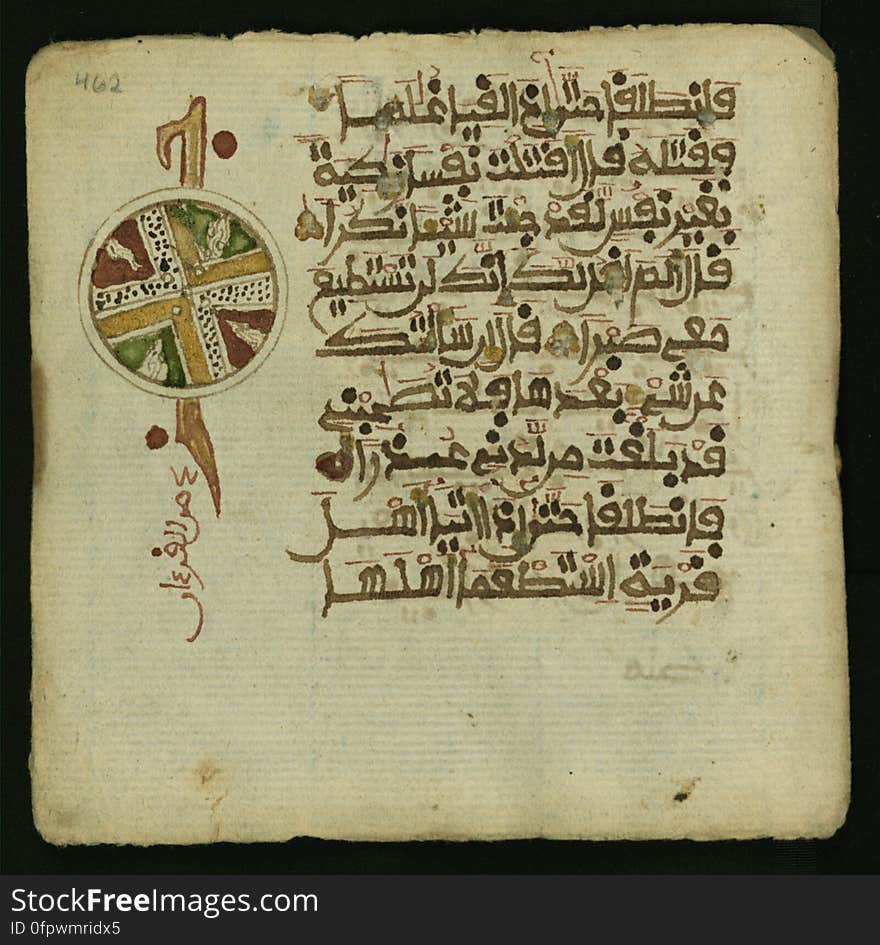 462
فانطلقا حتى اذا لقيا غلما
فقتله قال اقتلت نفسا زكية
بغير نفس لقد جئت شيئا نكرا
قال الم اقل لك انك لن تستطيع
معي صبرا قال ان سالتك
عن شيء بعدها فلا تصحبني
قد بلغت من لدني عذرا
فانطلقا حتى اذا اتيا اهل
قرية استطعما اهلها
من القرءان
StockFreeImages.com
ID 0fpwmridx5